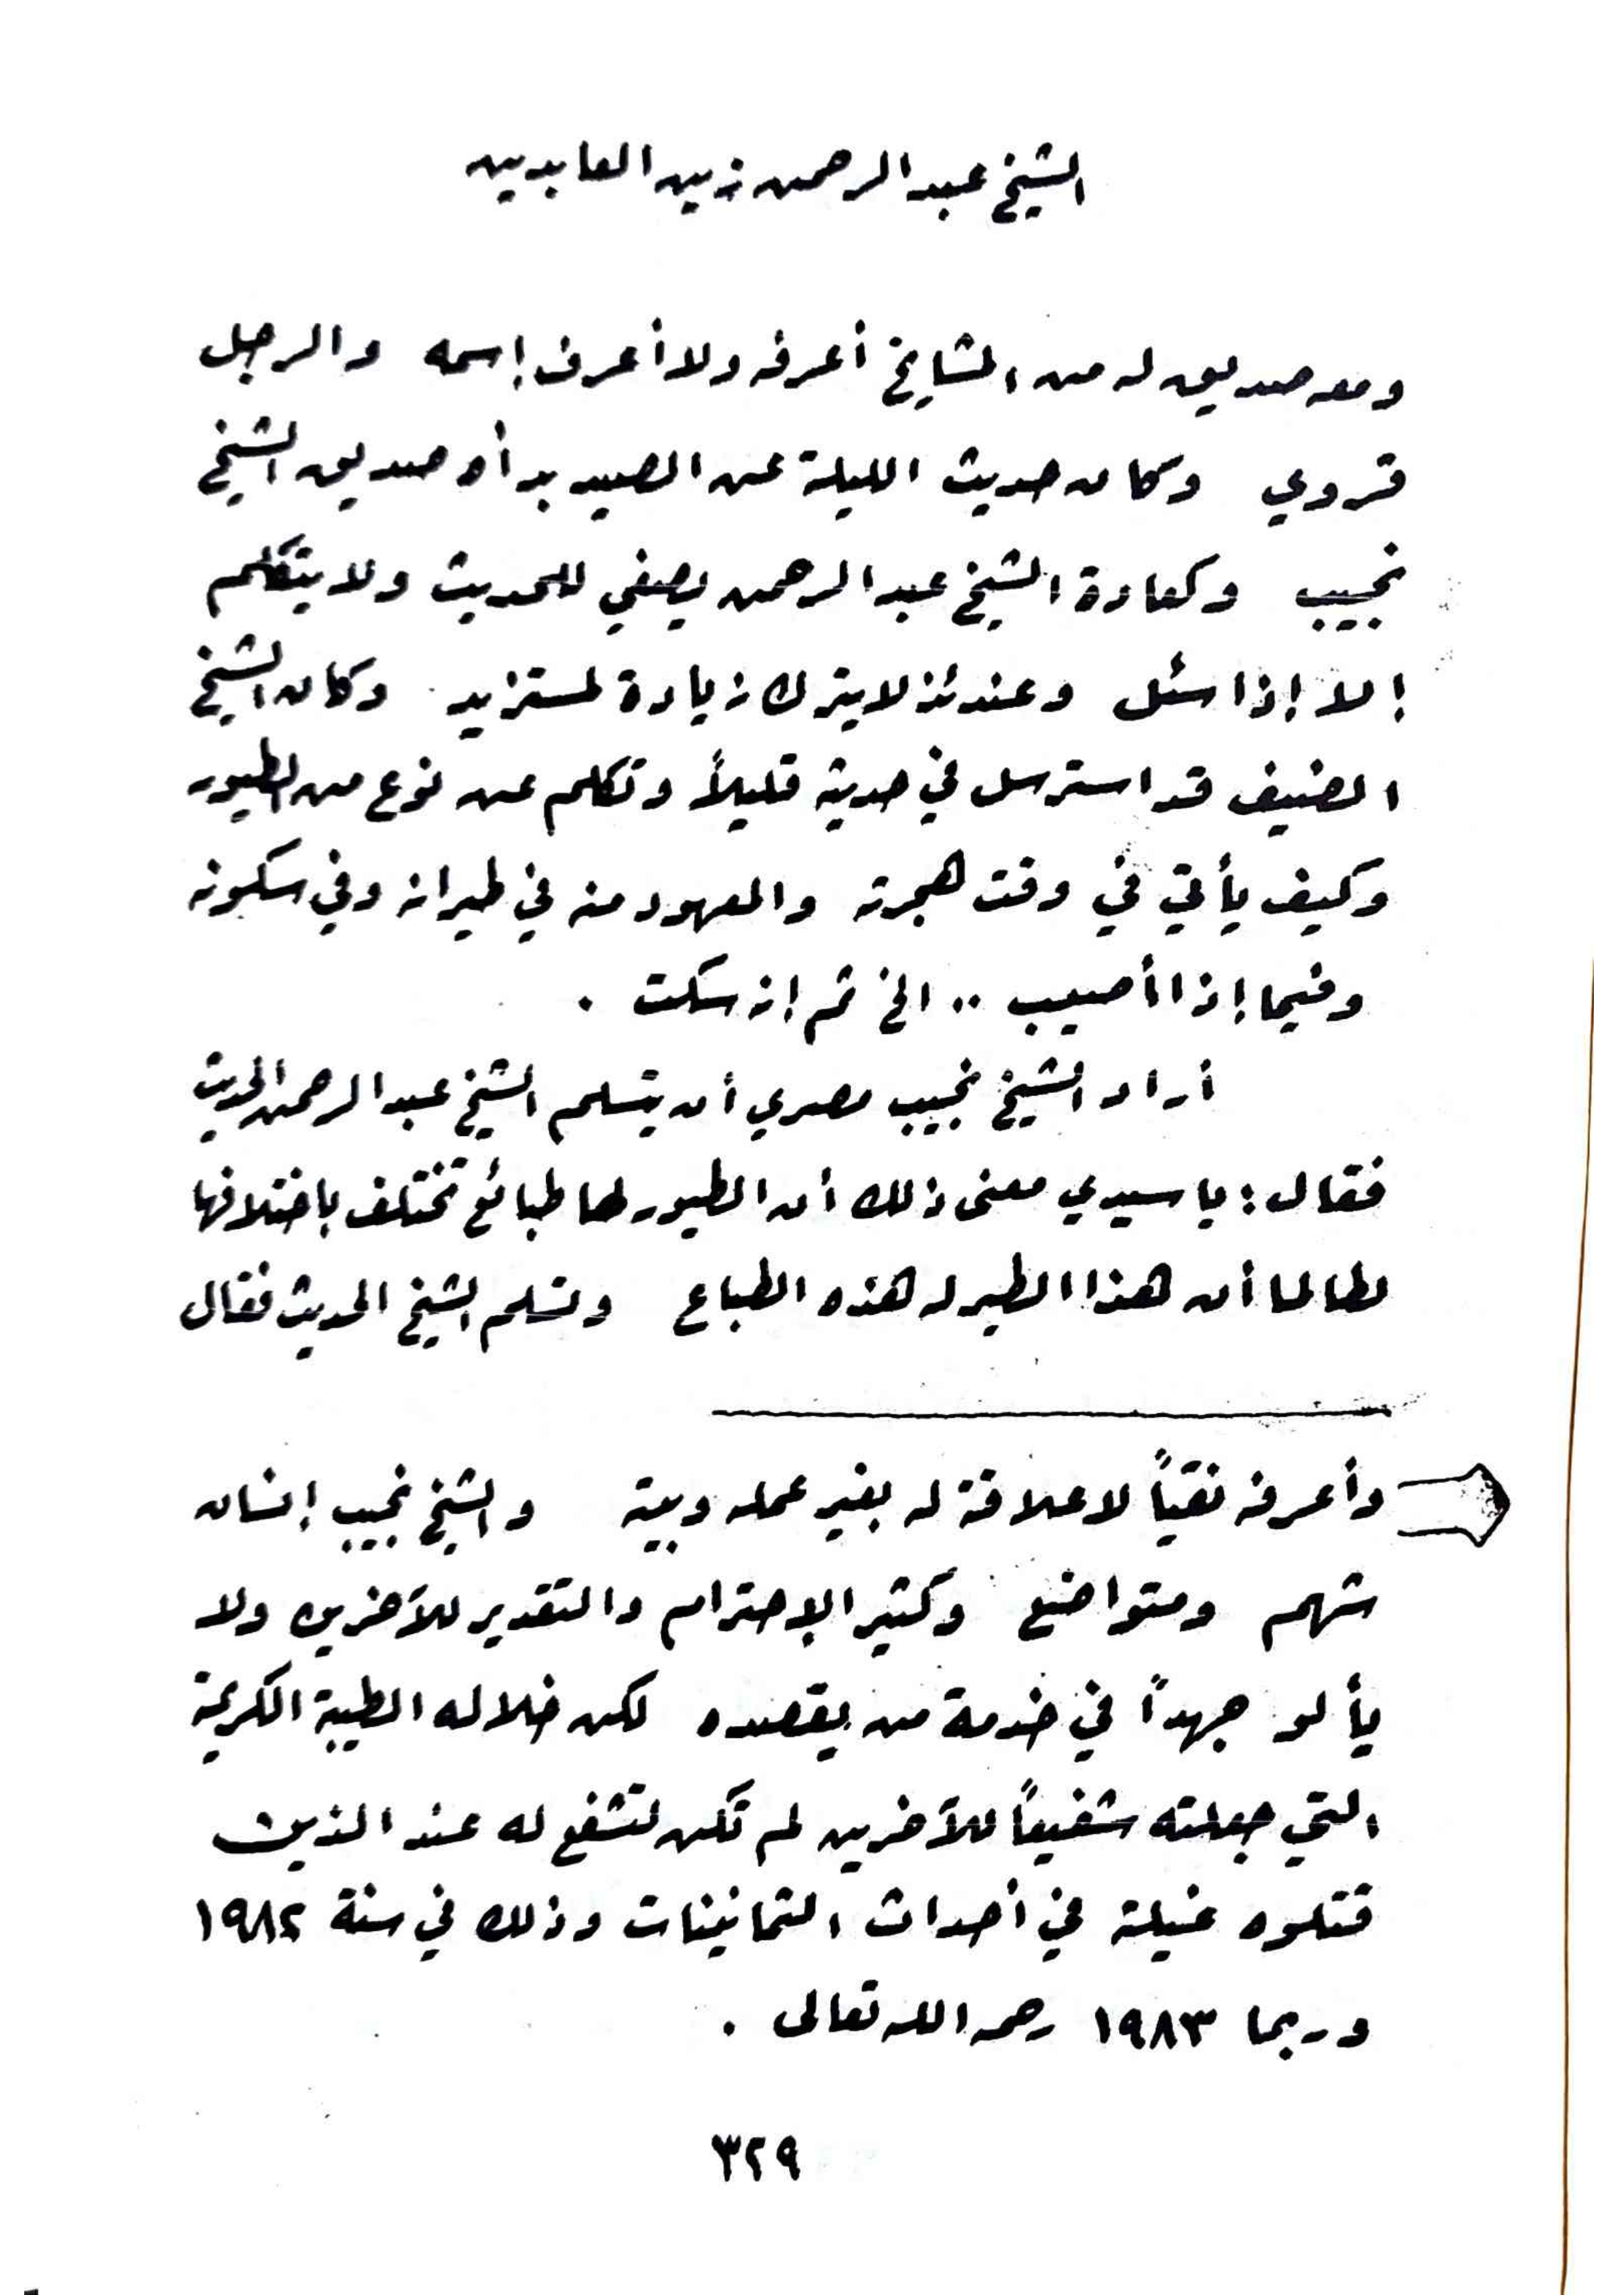 الشيخ عبد الرحمن زين العابدين
ومعه صديق له من المشايخ أعرفه ولا أعرف إسمه والرجل
قروي وكان حديث الليلة عن الصيد بدأه صديق الشيخ
نجيب وكعادة الشيخ عبد الرحمن يصغي للحديث ولا يتكلم
إلا إذا سئل وعندئذ لا يترك زيادة لمستزيد وكان الشيخ
الضيف قد استرسل في حديثه قليلاً وتكلم عن نوع من الطيور
وكيف يأتي في وقت هجرته والمعهود منه في طيرانه وفي سكونه
وفيما إذا أصيب .. الخ ثم إنه سكت .
أراد الشيخ نجيب مصري أن يتسلم الشيخ عبد الرحمن الحديث
فقال : يا سيدي معنى ذلك أن الطيور لها طبائع تختلف باختلافها
لطالما أن هذا الطير له هذه الطباع وتسلم الشيخ الحديث فقال
وأعرفه نقياً لا علاقة له بغير عمله وبيته والشيخ نجيب إنسان
شهم ومتواضع وكثير الإحترام والتقدير للآخرين ولا
يألو جهداً في خدمة من يقصده لكن خلاله الطيبة الكريمة
التي جعلته شفيعاً للآخرين لم تكن لتشفع له عند الذين
قتلوه غيلة في أحداث الثمانينات وذلك في سنة ١٩٨٢
وربما ١٩٨٣ رحمه الله تعالى .
٣٢٩